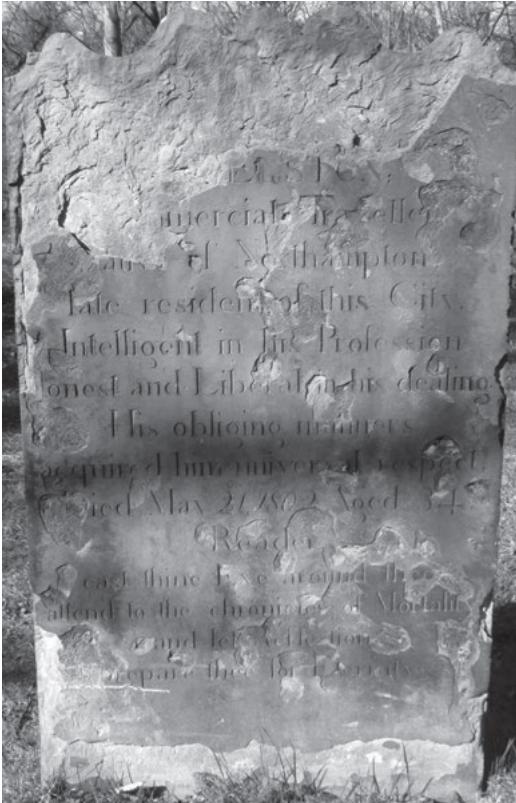 mercial Traveller
of Northampton
late resident of this City.
Intelligent in his Profession
onest and Liberal in his dealing
His obliging manners
acquired him universal respect
Died May 21 1802 Aged 34
Reader
cast thine Eye around thee
attend to the chronicles of Mortali
and let
prepare thee for